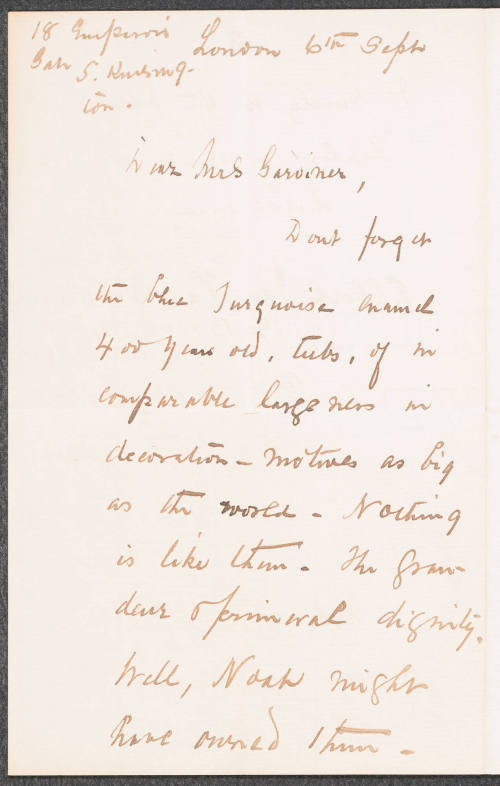 18 Emperor's
Gate S. Kensing-
ton.
London 6th Sept
Dear Mrs Gardiner,
Dont forget
the blue Turquoise enamel
400 years old, tubs, of in
comparable largeness in
decoration - motives as big
as the world - Nothing
is like them - the gran-
deur of primeval dignity.
Well, Noah might
have owned them -